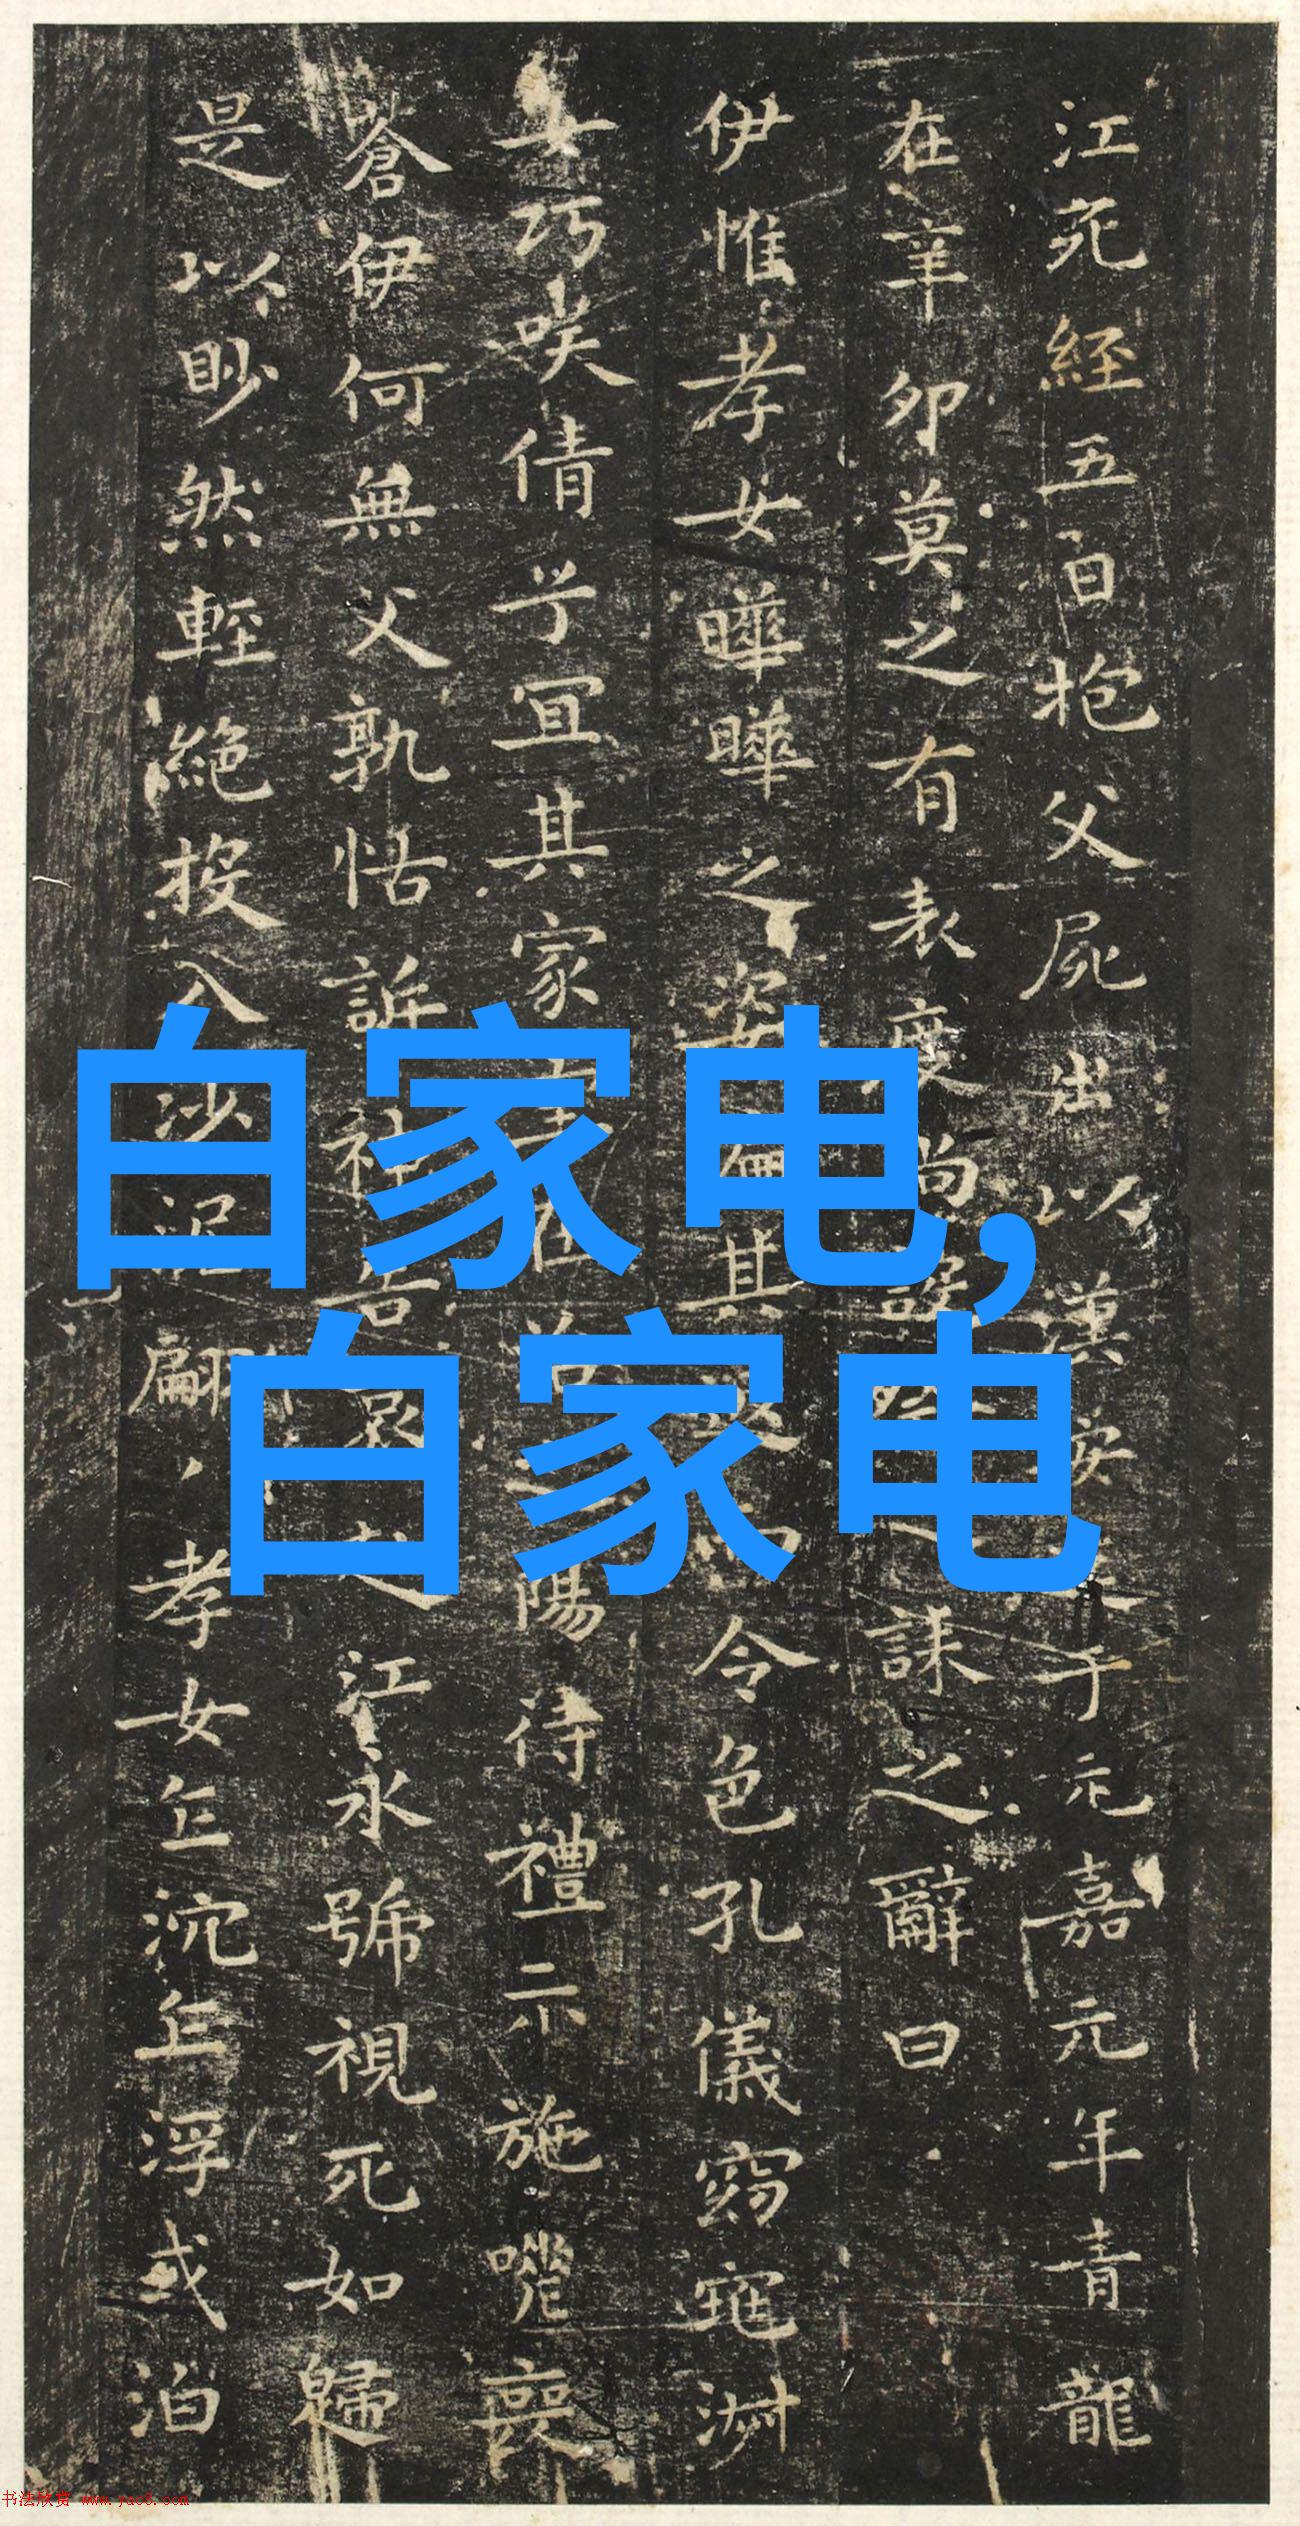 江死經五日抱父屍出以漢安于元嘉元年青龍
在辛卯莫之有表度尚設誄之辭曰
伊惟孝女曄曄之姿偏其返而令色孔儀窈窕淑
女巧咲倩兮宜其家室在洽之陽待禮未施嗟喪
蒼伊何無父孰怙訴神告哀赴江永號視死如歸
是以眇然輕絕投入沙泥翩、孝女乍沉乍浮或泊
白家电,
白家电
书法欣赏 www.yac8.com